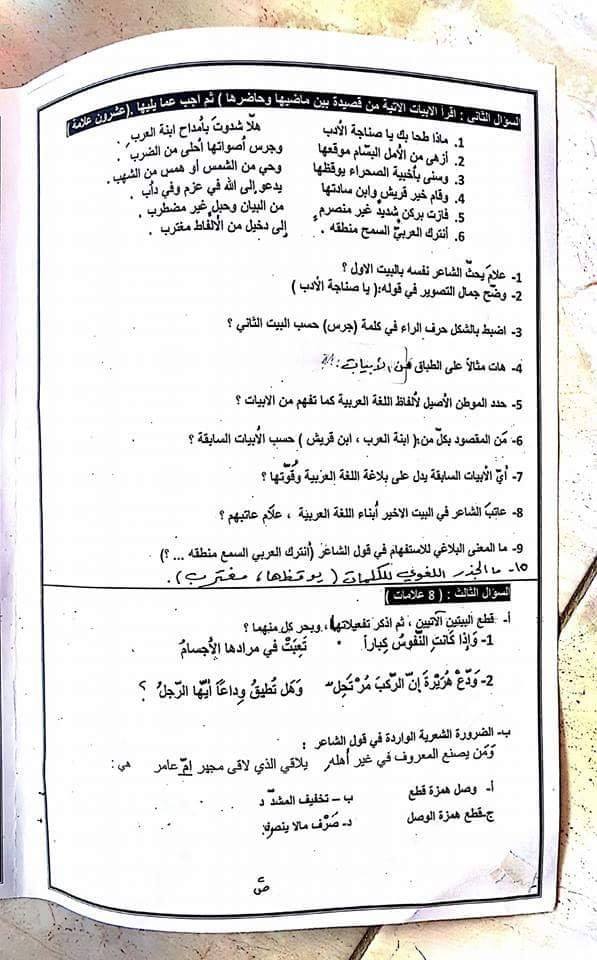 السؤال الثاني : اقرأ الابيات الآتية من قصيدة بين ماضيها وحاضرها ) ثم اجب عما يليها .(عشرون علامة )
1. ماذا طحا بك يا صناجة الأدب هلّا شدوتَ بأمداح ابنة العرب .
2. أزهى من الأمل البسّام موقعها وجرس أصواتها أحلى من الضرب .
3. وسنى بأخبية الصحراء يوقظها وحي من الشمس أو همس من الشهب .
4. وقام خير قريش وابن سادتها يدعو إلى الله في عزم وفي دأب .
5. فازت بركن شديد غير منصرم من البيان وحبل غير مضطرب .
6. أنترك العربيَّ السمح منطقه . إلى دخيل من الألفاظ مغترب .
1- علامَ يحثّ الشاعر نفسه بالبيت الاول ؟
2- وضّح جمال التصوير في قوله:( يا صناجة الأدب )
3- اضبط بالشكل حرف الراء في كلمة (جرس) حسب البيت الثاني ؟
4- هات مثالاً على الطباق من الأبيات .
5- حدد الموطن الأصيل لألفاظ اللغة العربية كما تفهم من الابيات ؟
6- مَن المقصود بكلّ من:( ابنة العرب ، ابن قريش ) حسب الأبيات السابقة ؟
7- أيّ الأبيات السابقة يدل على بلاغة اللغة العربية وقُوّتها ؟
8- عاتبَ الشاعر في البيت الاخير أبناء اللغة العربية ، علامَ عاتبهم ؟
9- ما المعنى البلاغي للاستفهام في قول الشاعر (أنترك العربي السمع منطقه ... ؟)
١٠- ما الجذر اللغوي للكلمات ( يوقظها، مغترب ).
السؤال الثالث : ( 8 علامات )
أ- قطع البيتين الآتيين ، ثم اذكر تفعيلاتها ، وبحر كل منهما ؟
1- وَإذا كَانَتِ النُّفوسُ كِباراً تَعِبَتْ في مرادها الأجسامُ
2- وَدِّعْ هُرَيْرَةَ إنّ الرّكبَ مُرْتَحِلُ وَهَل تُطيقُ وداعاً أيّها الرّجلُ ؟
ب- الضرورة الشعرية الواردة في قول الشاعر :
وَمَن يصنع المعروف في غير أهله يلاقي الذي لاقى مجير امّ عامر هي :
أ- وصل همزة قطع ب – تخفيف المشدّد
ج-قطع همزة الوصل د- صَرْف مالا ينصرف